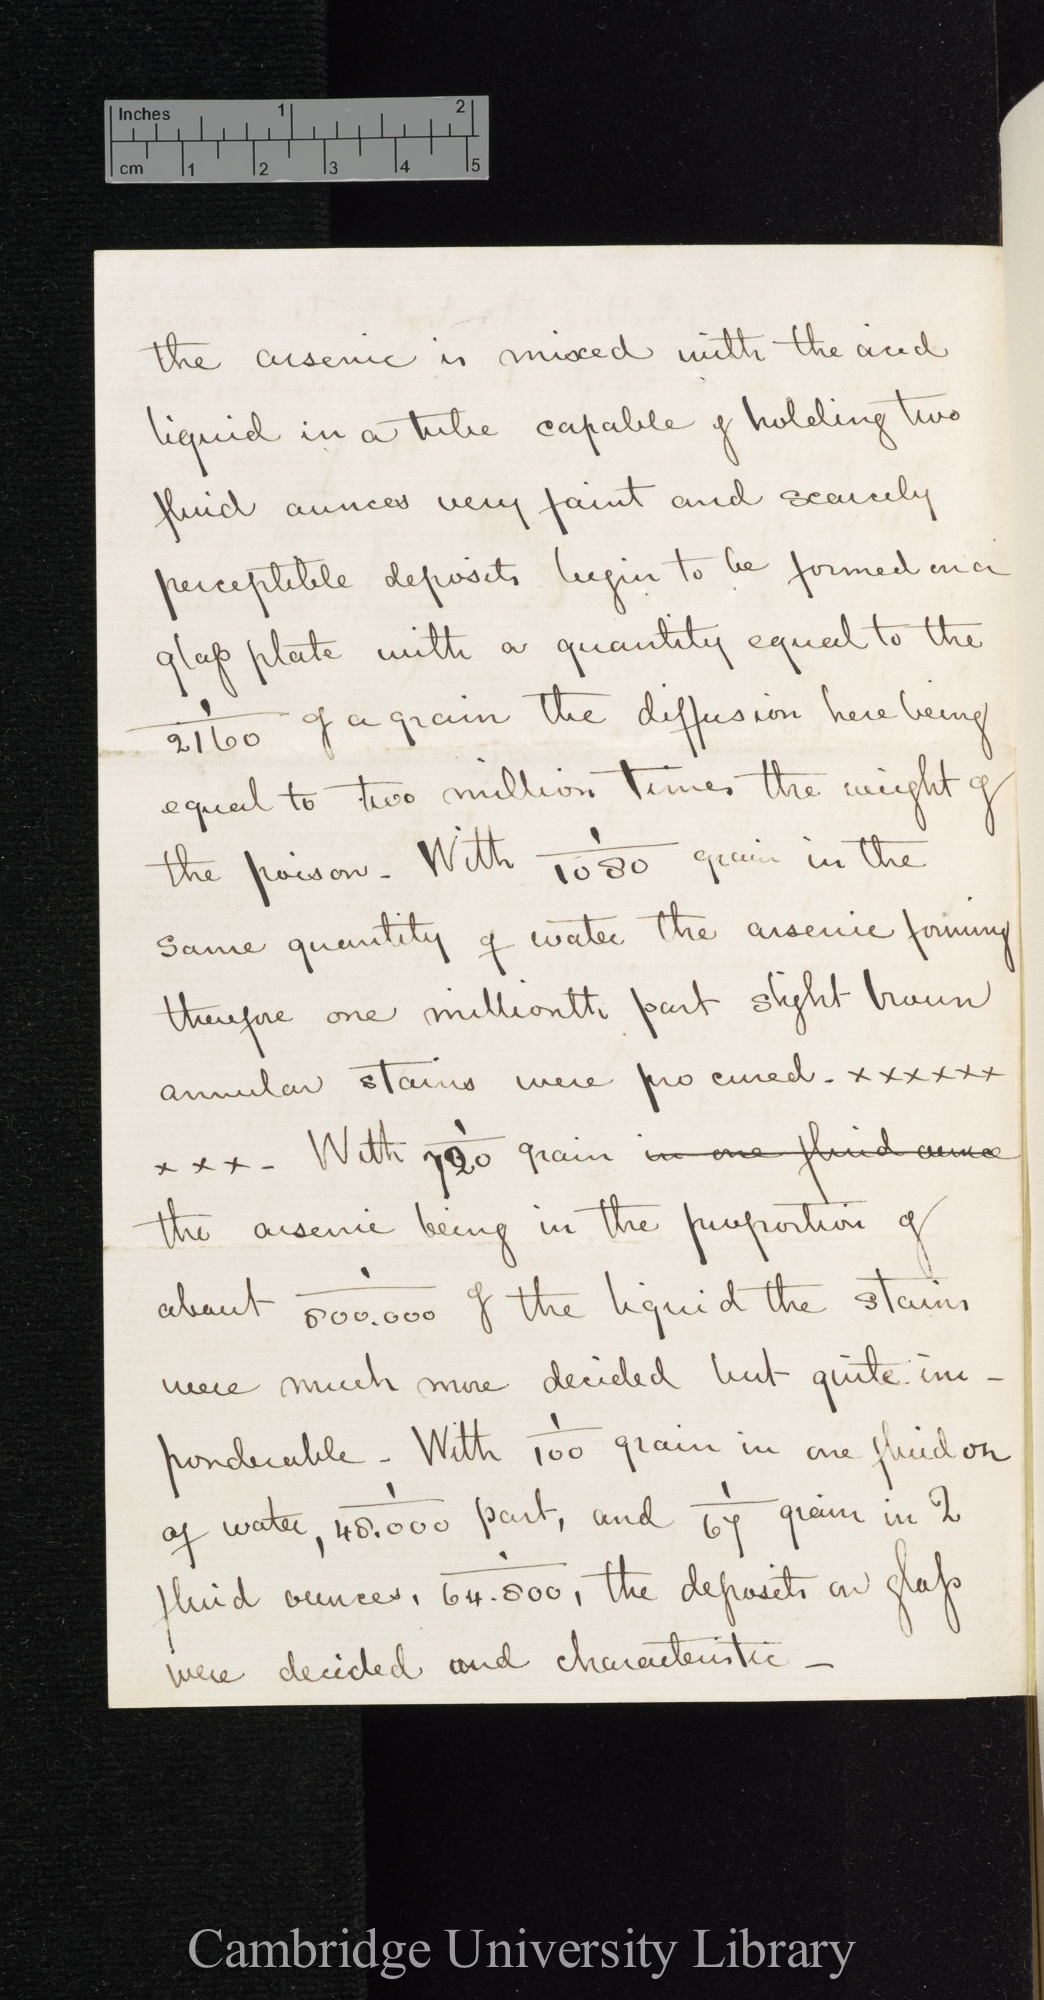 Inches 1 2
cm 1 2 3 4 5
the arsenic is mixed with the acid
liquid in a tube capable of holding two
fluid ounces very faint and scarcely
perceptible deposits begin to be formed on a
glass plate with a quantity equal to the
1/2160 of a grain the diffusion here being
equal to two million times the weight of
the poison - With 1/1080 grain in the
same quantity of water the arsenic forming
therefore one millionth part slight brown
annular stains were procured - xxxxxx
xxx - With 1/720 grain in one fluid ounce
the arsenic being in the proportion of
about 1/800.000 of the liquid the stains
were much more decided but quite im-
ponderable - With 1/100 grain in one fluid oz
of water, 1/48.000 part, and 1/67 grain in 2
fluid ounces, 1/64.800, the deposits on glass
were decided and characteristic -
Cambridge University Library